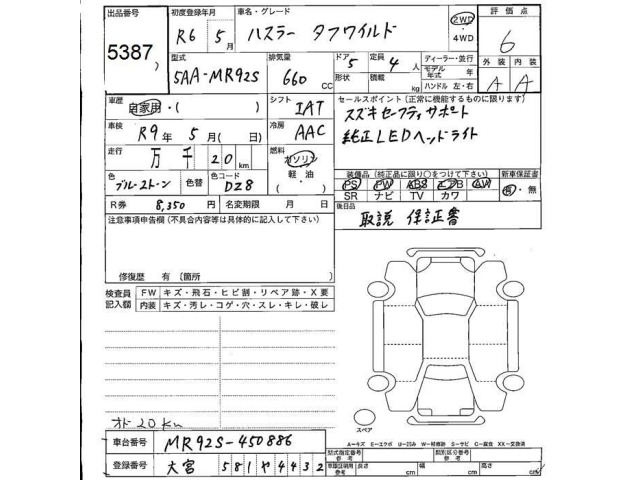 出品番号 初度登録年月 車名・グレード 評価点
5387 R6 5月 ハスラー タフワイルド 2WD・4WD 6
型式 排気量 ドア 5 定員 4人 ディーラー・並行 外装 内装
5AA-MR92S 660 CC 形状 積載 kg モデル年式 年 ハンドル 左・右 A A
車歴 自家用・( ) シフト IAT セールスポイント(正常に機能するものに限ります)
車検 R9年 5月( 日) 冷房 AAC スズキセーフティサポート
走行 万 千 20 km 燃料 ガソリン 軽油 ・( ) 純正LEDヘッドライト
色 ブルー2トーン 色替 色コード DZ8 装備品(純正品に限り○をつけて下さい) 新車保証書
PS PW ABS エアB AW 有・無
SR ナビ TV カワ
R券 8,350 円 名変期限 月 日 後日品
注意事項申告欄(不具合内容等は具体的に記入して下さい) 取説 保証書
修復歴 有〔箇所
検査員記入欄 FW キズ・飛石・ヒビ割・リペア跡・X要
内装 キズ・汚レ・コゲ・穴・スレ・キレ・破レ
オド20km
スペア
A=キズ E=エクボ U=凹み W=補修跡 S=サビ C=腐食 XX=交換済
車台番号 MR92S-450886 型式指定番号 参考 類別区分番号 参考
登録番号 大宮 581 や 4432 車車証明用 参考 長さ cm 幅 cm 高さ cm